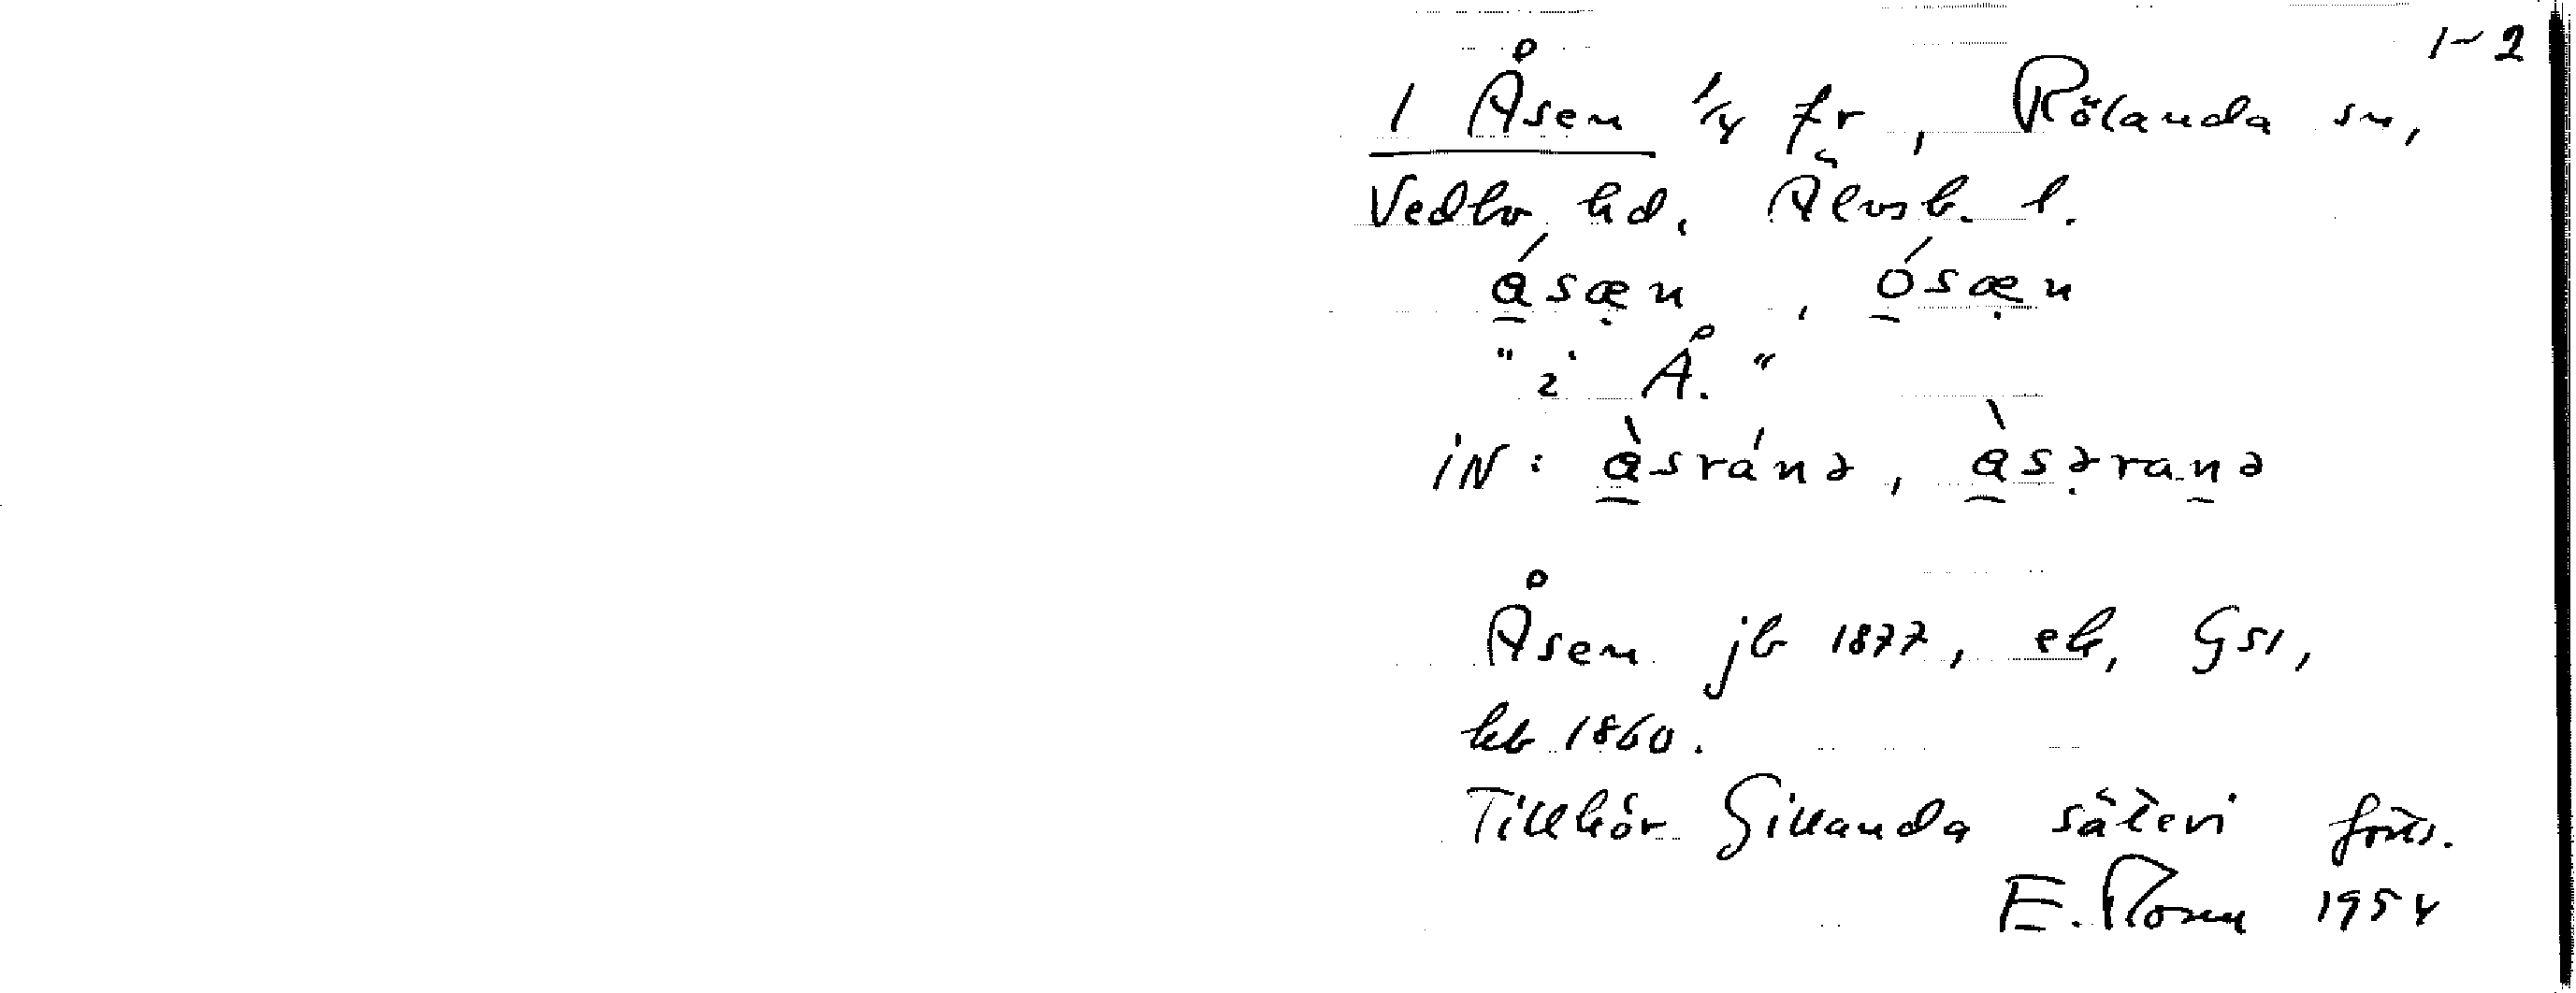 1-2
1 Åsen 1/4 fr, Rölanda sn,
Vedbo hd. Älvsb. l.
ásæn, ósæn
"i Å."
iN: àsránə, àsəranə
Åsen jb 1877, ek, GS1,
kb 1860.
Tillhör Gillanda säteri
E. Rosen 1954